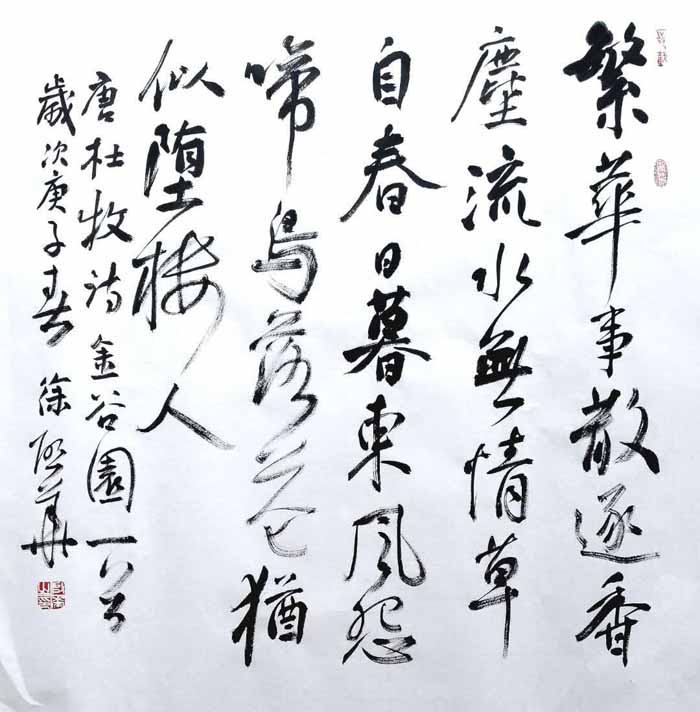 繁華事散逐香
塵流水無情草
自春日暮東風怨
啼鳥落花猶
似堕楼人
唐杜牧诗金谷園一首
歲次庚子春 徐華